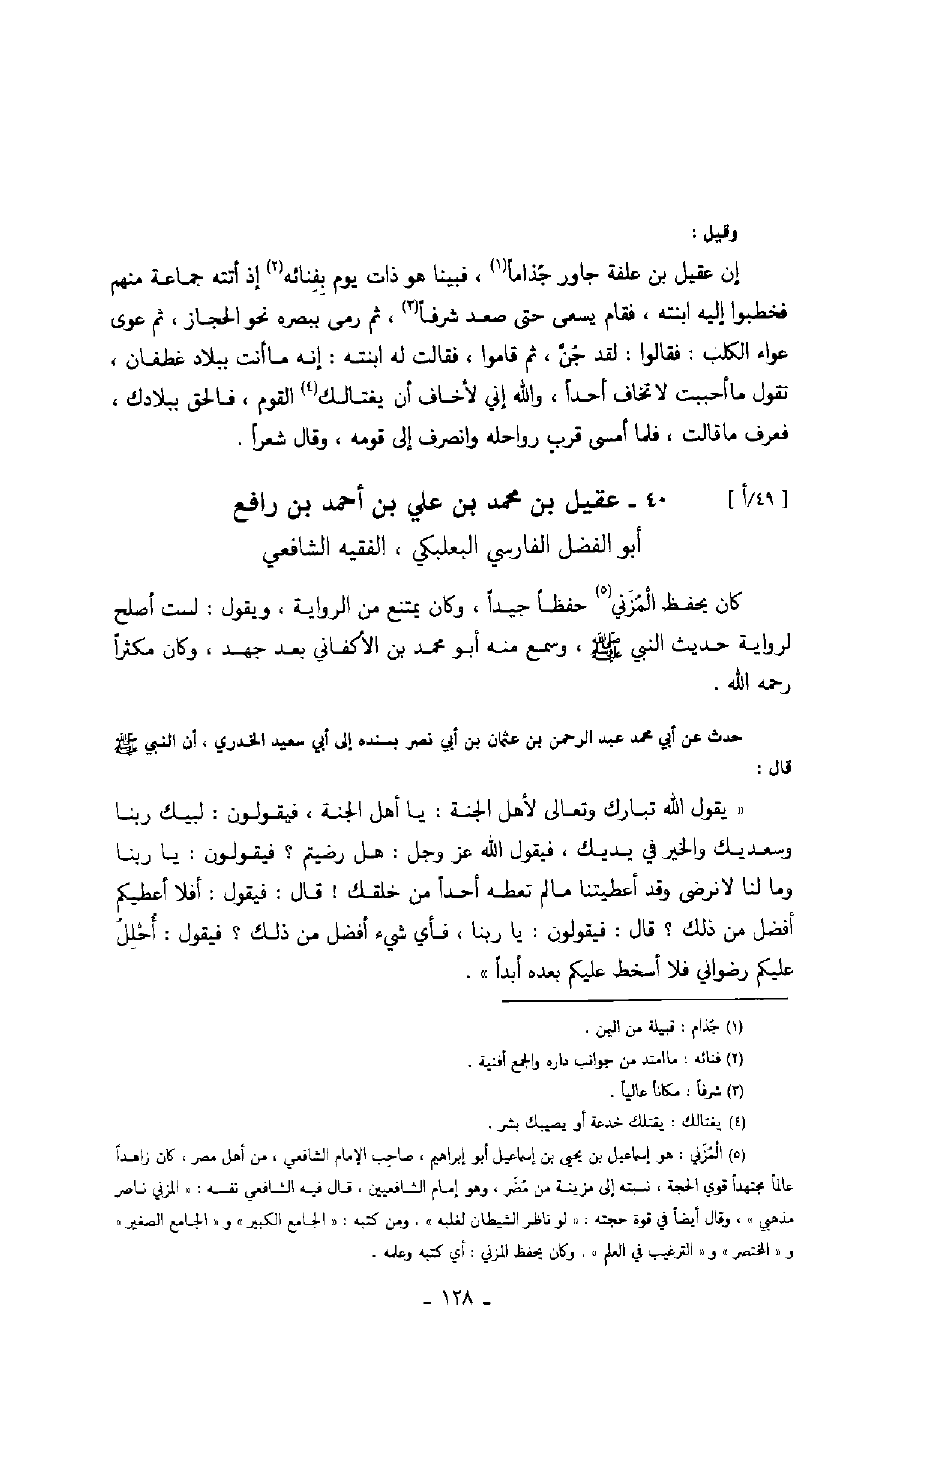 وقيل :
إن عقيل بن علفة جاور جُذاماً(١) ، فبينا هو ذات يوم بِفِنائه(٢) إذ أتته جماعة منهم
فخطبوا إليه ابنته ، فقام يسعى حتى صعد شرفاً(٣) ، ثم رمى ببصره نحو الحجاز ، ثم عوى
عواء الكلب : فقالوا : لقد جُنَّ ، ثم قاموا ، فقالت له ابنته : إنه ماأنت ببلاد غطفان ،
تقول ماأحببت لاتخاف أحداً ، والله إني لأخاف أن يغتالك(٤) القوم ، فالحق ببلادك ،
فعرف ماقالت ، فلما أمسى قرب رواحله وانصرف إلى قومه ، وقال شعراً .
[ ٤٩/أ ] ٤٠ ـ عقيل بن محمد بن علي بن أحمد بن رافع
أبو الفضل الفارسي البعلبكي ، الفقيه الشافعي
كان يحفظ الْمُزَني(٥) حفظاً جيداً ، وكان يمتنع من الرواية ، ويقول : لست أصلح
لرواية حديث النبي ﷺ ، وسمع منه أبو محمد بن الأكفاني بعد جهد ، وكان مكثراً
رحمه الله .
حدث عن أبي محمد عبد الرحمن بن عثمان بن أبي نصر بسنده إلى أبي سعيد الخدري ، أن النبي ﷺ
قال :
« يقول الله تبارك وتعالى لأهل الجنة : يا أهل الجنة ، فيقولون : لبيك ربنا
وسعديك والخير في يديك ، فيقول الله عز وجل : هل رضيتم ؟ فيقولون : يا ربنا
وما لنا لانرضى وقد أعطيتنا مالم تعطه أحداً من خلقك ! قال : فيقول : أفلا أعطيكم
أفضل من ذلك ؟ قال : فيقولون : يا ربنا ، فأي شيء أفضل من ذلك ؟ فيقول : أُحْلِلُ
عليكم رضواني فلا أسخط عليكم بعده أبداً » .
(١) جُذام : قبيلة من اليمن .
(٢) فنائه : ماامتد من جوانب داره والجمع أفنية .
(٣) شرفاً : مكاناً عالياً .
(٤) يغتالك : يقتلك خدعة أو يصيبك بشر .
(٥) الْمُزَني : هو إسماعيل بن يحيى بن إسماعيل أبو إبراهيم ، صاحب الإمام الشافعي ، من أهل مصر ، كان زاهداً
عالماً مجتهداً قوي الحجة ، نسبته إلى مزينة من مُضَر ، وهو إمام الشافعيين ، قال فيه الشافعي نفسه : « المزني ناصر
مذهبي » ، وقال أيضاً في قوة حجته : « لو ناظر الشيطان لغلبه » . ومن كتبه : « الجامع الكبير » و « الجامع الصغير »
و « المختصر » و « الترغيب في العلم » . وكان يحفظ المزني : أي كتبه وعلمه .
ـ ١٢٨ ـ